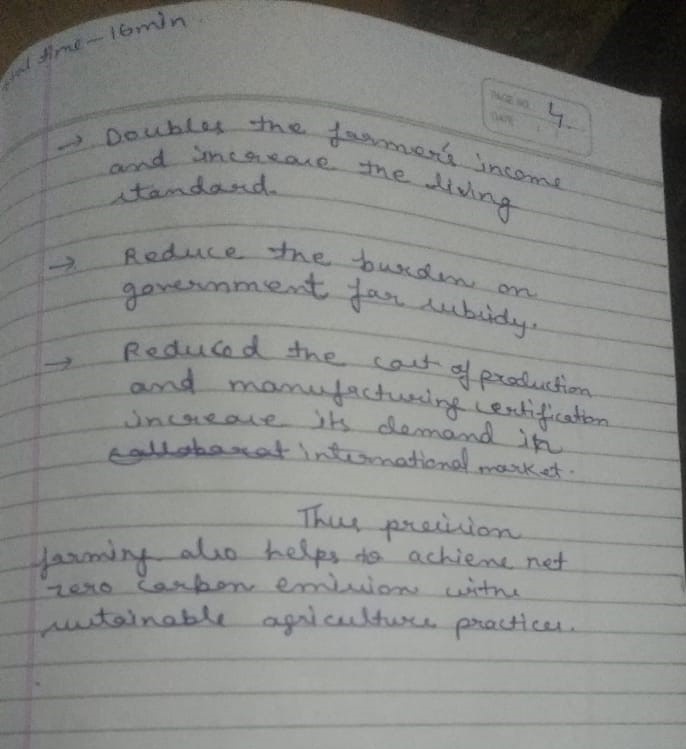 time - 16min
PAGE NO. 4.
DATE
→ Doubles the farmer's income
and increase the living
standard.
→ Reduce the burden on
government for subsidy.
→ Reduced the cost of production
and manufacturing certification
increase its demand in
international market.
Thus precision
farming also helps to achieve net
zero carbon emission with
sustainable agriculture practices.